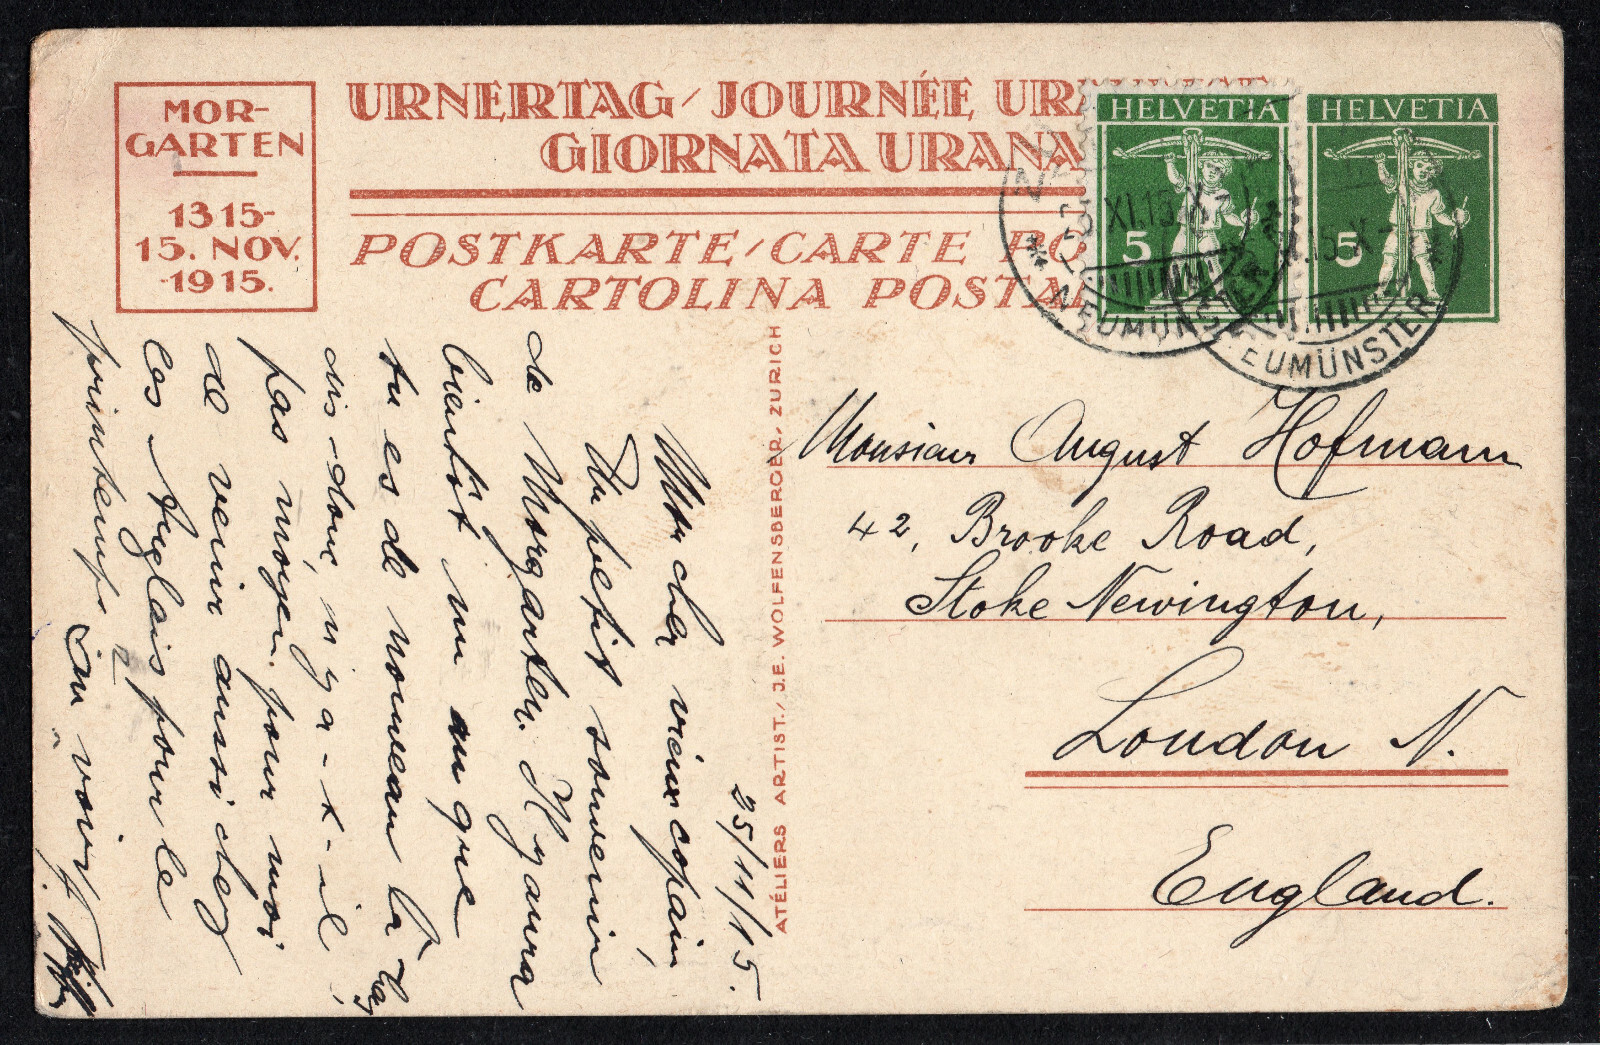 MOR-
GARTEN
1315-
15. NOV.
1915.
URNERTAG / JOURNÉE
GIORNATA URANA
POSTKARTE / CARTE
CARTOLINA
HELVETIA
5
HELVETIA
5
NEUMÜNSTER
EUMÜNSTER
ATELIERS ARTIST. / J.E. WOLFENSBERGER, ZURICH
25/11/15.
Mon cher vieux copain,
Un petit souvenir
de Morgarten. Il y aura
bientôt un an que
tu es de nouveau là bas
dis-donc, n'y a-t-il
pas moyen pour moi
de venir aussi chez
les Anglais pour le
printemps
Au voir
Monsieur August Hofmann
42, Brooke Road,
Stoke Newington,
London N.
England.